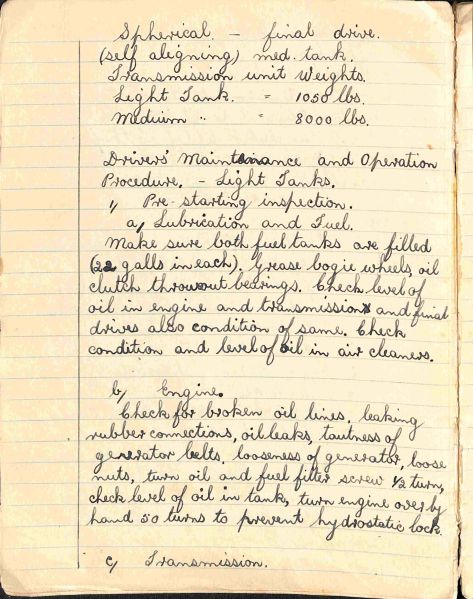 Spherical - final drive.
(self aligning) med. tank.
Transmission unit Weights.
Light Tank. = 1050 lbs.
Medium " = 8000 lbs.
Drivers' Maintainance and Operation
Procedure. - Light Tanks.
1, Pre-starting inspection.
a, Lubrication and Fuel.
Make sure both fuel tanks are filled
(22 galls in each). Grease bogie wheels, oil
clutch throwout bearings. Check level of
oil in engine and transmission and final
drives also condition of same. Check
condition and level of oil in air cleaners.
b, Engine.
Check for broken oil lines, leaking
rubber connections, oil leaks, tautness of
generator belts, looseness of generator, loose
nuts, turn oil and fuel filter screw 1/2 turn,
check level of oil in tank, turn engine over by
hand 50 turns to prevent hydrostatic lock.
c, Transmission.